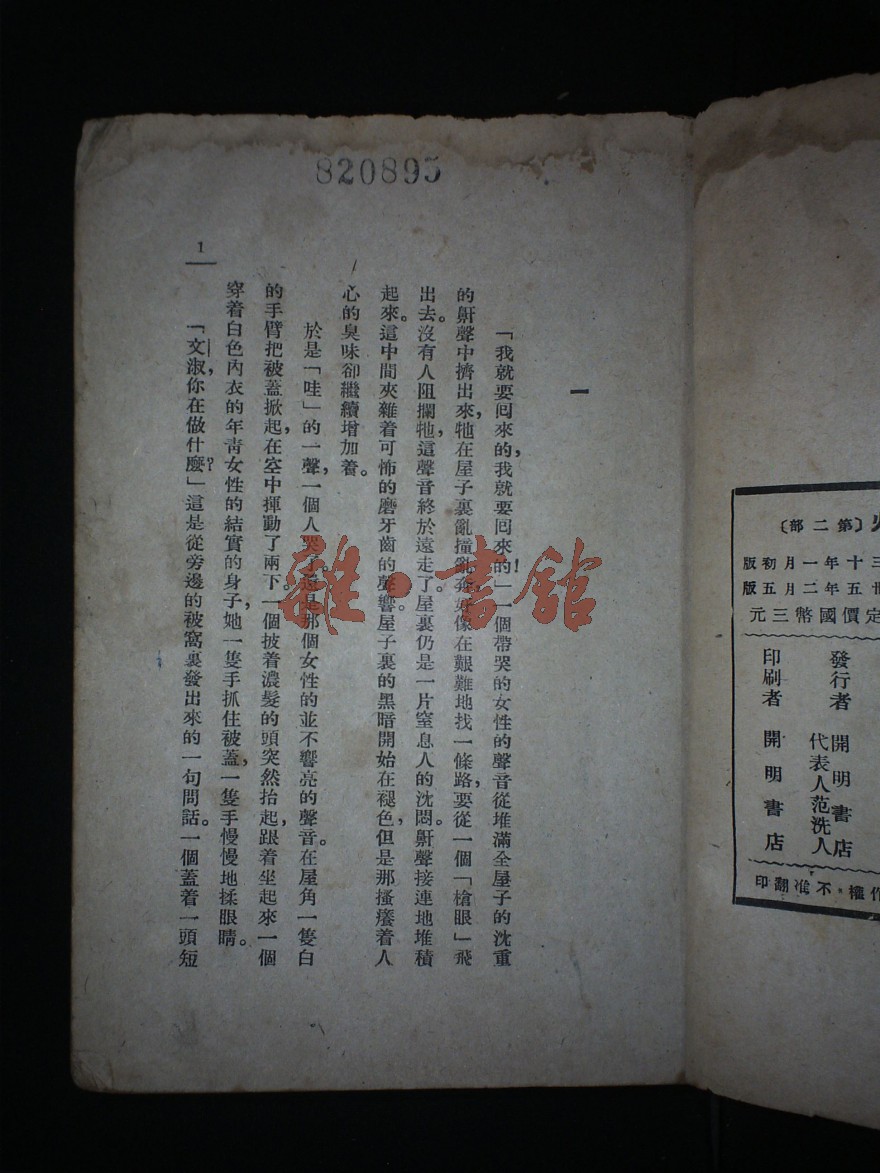 820895
1
一
「我就要囘來的，我就要囘來的！」一個帶哭的女性的聲音從堆滿全屋子的沈重
的鼾聲中擠出來，牠在屋子裏亂撞亂奔，好像在艱難地找一條路，要從一個「槍眼」飛
出去。沒有人阻攔牠，這聲音終於遠走了。屋裏仍是一片窒息人的沈悶。鼾聲接連地堆積
起來。這中間夾雜着可怖的磨牙齒的聲響。屋子裏的黑暗開始在褪色，但是那搔癢着人
心的臭味卻繼續增加着。
於是「哇」的一聲，一個人哭了。這是那個女性的並不響亮的聲音。在屋角一隻白
的手臂把被蓋掀起，在空中揮動了兩下。一個披着濃髮的頭突然抬起，跟着坐起來一個
穿着白色內衣的年靑女性的結實的身子，她一隻手抓住被蓋，一隻手慢慢地揉眼睛。
「文淑，你在做什麼？」這是從旁邊的被窩裏發出來的一句問話。一個蓋着一頭短
〔第二部〕
三十年一月初版
卅五年二月五版
定價國幣三元
發行者 開明書店
代表人范洗人
印刷者 開明書店
作權・不准翻印
雜・書館